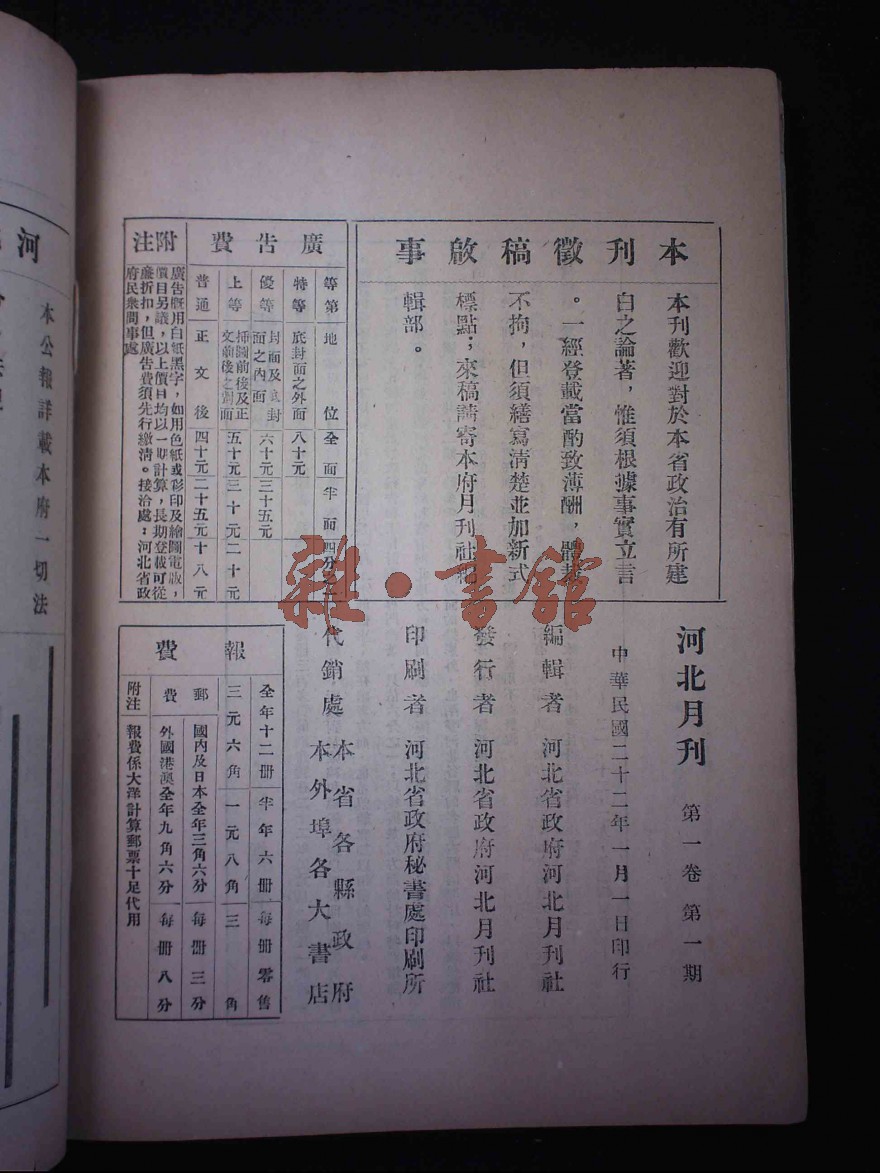 本刊徵稿啟事
本刊歡迎對於本省政治有所建
白之論著，惟須根據事實立言
。一經登載當酌致薄酬，體裁
不拘，但須繕寫清楚並加新式
標點；來稿請寄本府月刊社
輯部。
廣告費
等第 地位 全面 半面 四分之一
特等 底封面之外面 八十元
優等 封面及底封面之內面 六十元 三十五元
上等 插圖前後及正文前後之對面 五十元 三十元 二十元
普通 正文後 四十元 二十五元 十八元
附注
廣告概用白紙黑字，如用色紙或彩印及繪圖電版，
價目另議，以上價目均以一期計算，長期登載可從
廉折扣，但廣告費須先行繳清。接洽處：河北省政
府民衆問事處
河北月刊 第一卷 第一期
中華民國二十二年一月一日印行
編輯者 河北省政府河北月刊社
發行者 河北省政府河北月刊社
印刷者 河北省政府秘書處印刷所
代銷處 本省各縣政府
本外埠各大書店
報費
全年十二册 半年六册 每册零售
三元六角 一元八角 三角
郵費
國內及日本全年三角六分 每册三分
外國港澳全年九角六分 每册八分
附注 報費係大洋計算郵票十足代用
河
本公報詳載本府一切法
雜·書館